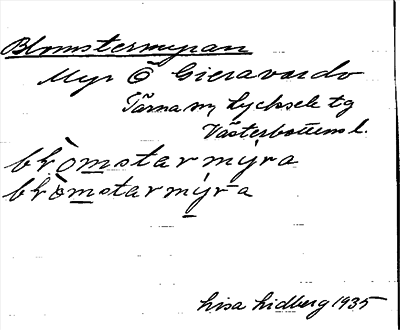 Blomstermyran
Myr Ö Gieravardo
Tärna sn, Lycksele tg
Västerbottens l.
blòmstarmýra
blòmstarmýra
Lisa Lidberg 1935